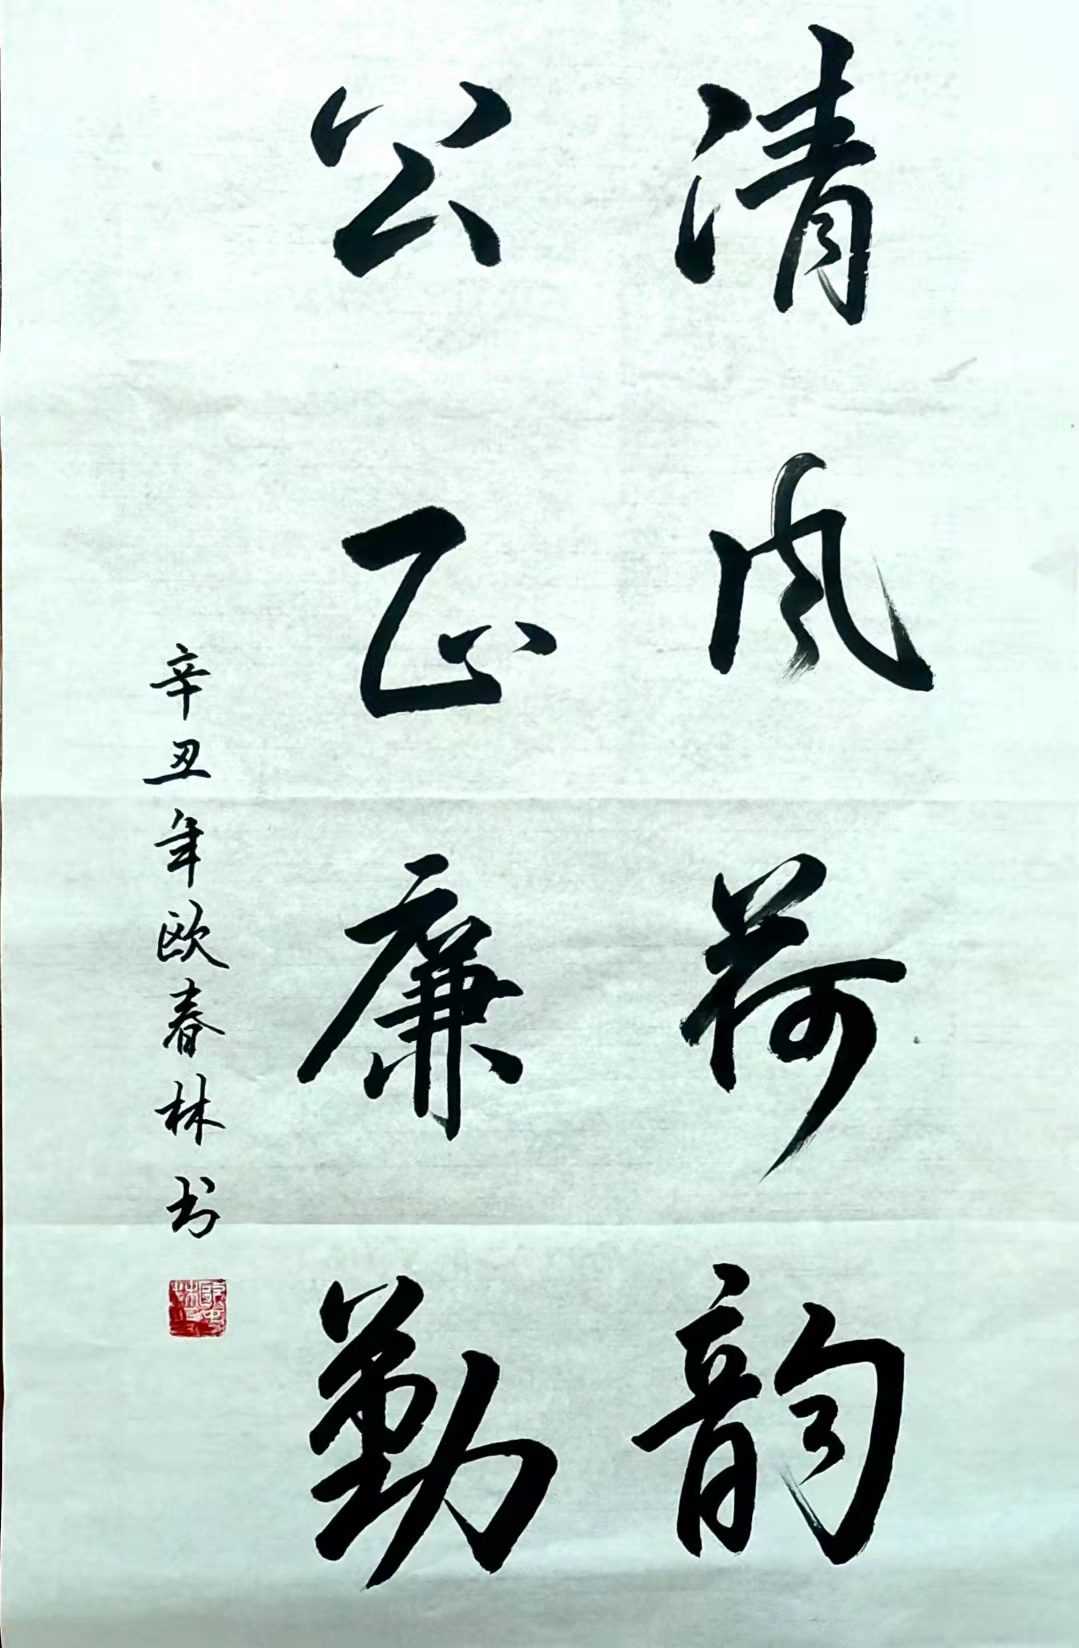 清风荷韵
公正廉勤
辛丑年欧春林书